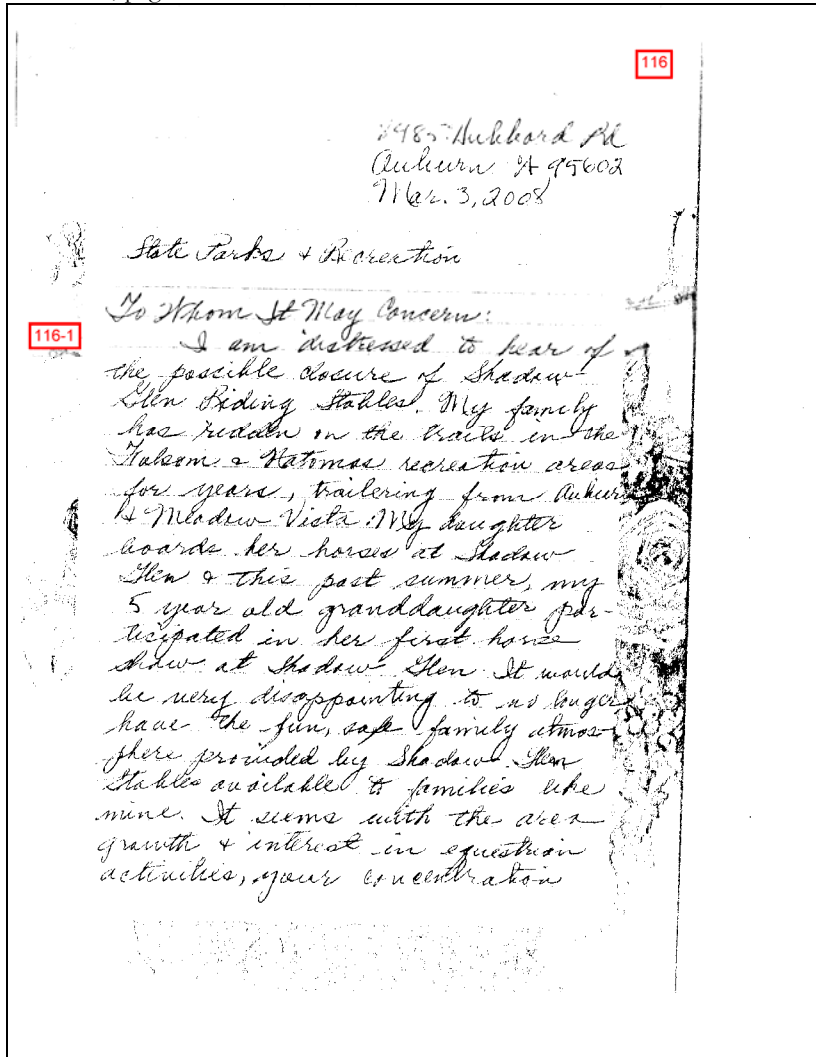 116
Hubbard Rd
Auburn CA 95602
Mar. 3, 2008
State Parks & Recreation
To Whom It May Concern:
116-1
I am distressed to hear of
the possible closure of Shadow
Glen Riding Stables. My family
has ridden on the trails in the
Folsom & Natomas recreation areas
for years, trailering from Auburn
& Meadow Vista. My daughter
boards her horses at Shadow
Glen & this past summer, my
5 year old granddaughter par-
ticipated in her first horse
show at Shadow Glen. It would
be very disappointing to no longer
have the fun, safe family atmos-
phere provided by Shadow Glen
Stables available to families like
mine. It seems with the area
growth & interest in equestrian
activities, your concentration